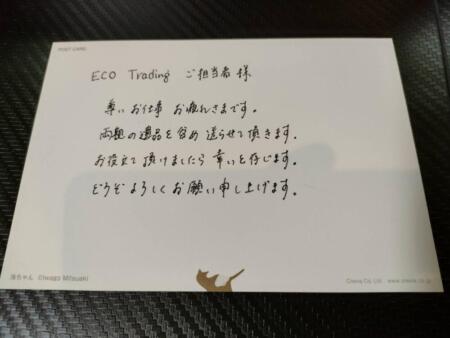 POST CARD
ECO Trading ご担当者 様
尊いお仕事 お疲れさまです。
両親の遺品を含め 送らせて頂きます。
お役立て頂けましたら 幸いと存じます。
どうぞよろしくお願い申し上げます。
海ちゃん ©Iwago Mitsuaki
Creava Co., Ltd. www.creava.co.jp